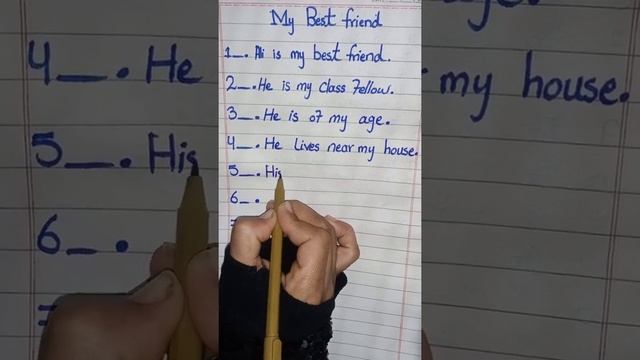 My Best friend
1_. Ali is my best friend.
2_. He is my class Fellow.
3_. He is of my age.
4_. He Lives near my house.
5_. His
6_.